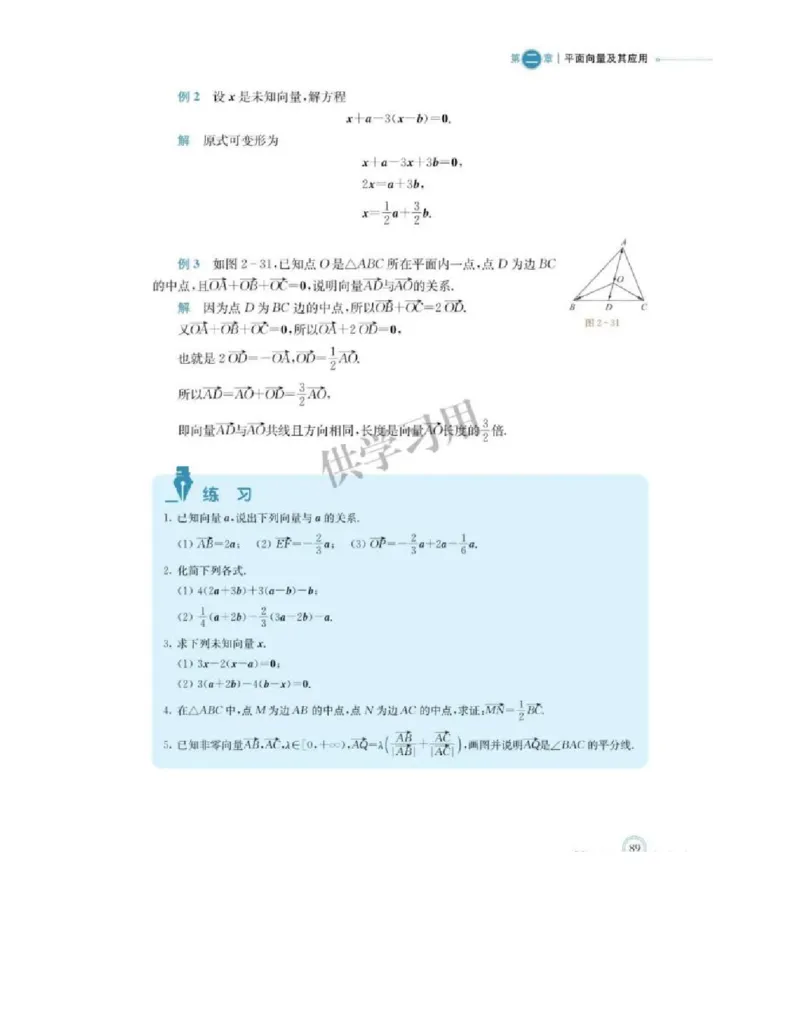 第二章 平面向量及其应用
例 2 设 x 是未知向量,解方程
x+a-3(x-b)=0.
解 原式可变形为
x+a-3x+3b=0,
2x=a+3b,
x=1/2a+3/2b.
例 3 如图 2-31,已知点 O 是△ABC 所在平面内一点,点 D 为边 BC
的中点,且OA→+OB→+OC→=0,说明向量AD→与AO→的关系.
解 因为点 D 为 BC 边的中点,所以OB→+OC→=2OD→.
又OA→+OB→+OC→=0,所以OA→+2OD→=0,
也就是 2OD→=-OA→,OD→=1/2AO→.
所以AD→=AO→+OD→=3/2AO→,
即向量AD→与AO→共线且方向相同,长度是向量AO→长度的3/2倍.
A
O
B
D
C
图 2-31
供学习用
练 习
1. 已知向量 a,说出下列向量与 a 的关系.
(1) AB→=2a; (2) EF→=-2/3a; (3) OP→=-2/3a+2a-1/6a.
2. 化简下列各式.
(1) 4(2a+3b)+3(a-b)-b;
(2) 1/4(a+2b)-2/3(3a-2b)-a.
3. 求下列未知向量 x.
(1) 3x-2(x-a)=0;
(2) 3(a+2b)-4(b-x)=0.
4. 在△ABC 中,点 M 为边 AB 的中点,点 N 为边 AC 的中点,求证:MN→=1/2BC→.
5. 已知非零向量AB→,AC→,λ∈[0,+∞),AQ→=λ(AB→/|AB→|+AC→/|AC→|),画图并说明AQ→是∠BAC 的平分线.
89